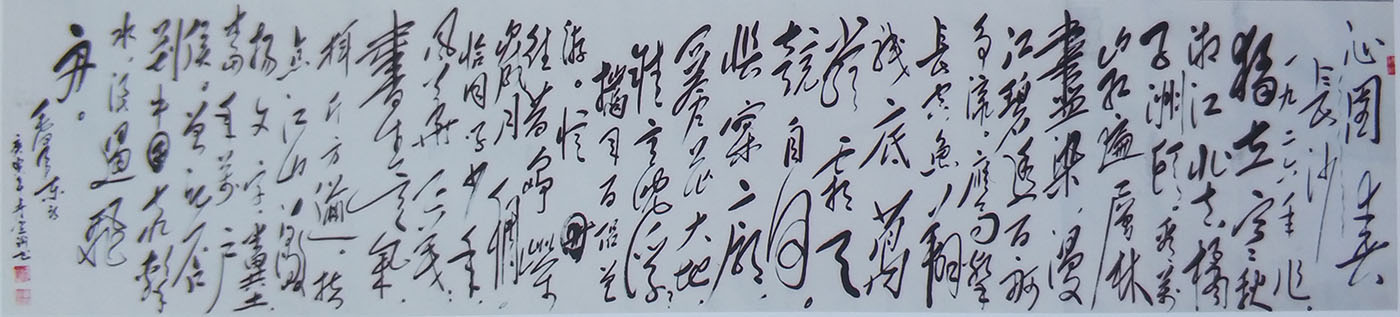 沁园春
长沙
一九二六年作
独立寒秋
湘江北去，橘
子洲头，看万
山红遍，层林
盡染，漫
江碧透，百舸
争流，鹰击
长空，鱼翔
浅底，万
类霜天
竞自由。
怅寥廓
苍茫大地
谁主沉浮
携同百侣曾
游。忆
往昔峥嵘
岁月稠
恰同学少年，
风华正茂，
書生意气，
挥斥方遒，指
点江山，激
扬文字，粪土
当年万户
侯。曾记否
到中流击
水，浪遏飞
舟。
毛泽东词